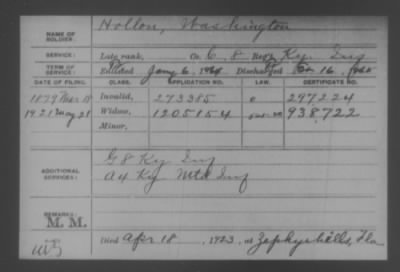 NAME OF SOLDIER: Hollon, Washington
SERVICE: Late rank, Co. C, 8 Reg't Ky. Inf
TERM OF SERVICE: Enlisted Jany 6, 1864 Discharged 16,
DATE OF FILING. CLASS. APPLICATION NO. LAW. CERTIFICATE NO.
1879 Mar 18 Invalid, 273385 297224
1921 May 21 Widow, 1205154 938722
Minor,
ADDITIONAL SERVICES: G 8 Ky Inf
A 4 Ky Mtd Inf
REMARKS: M. M.
Died Apr 18, 1923, at Zephyrhills, Fla